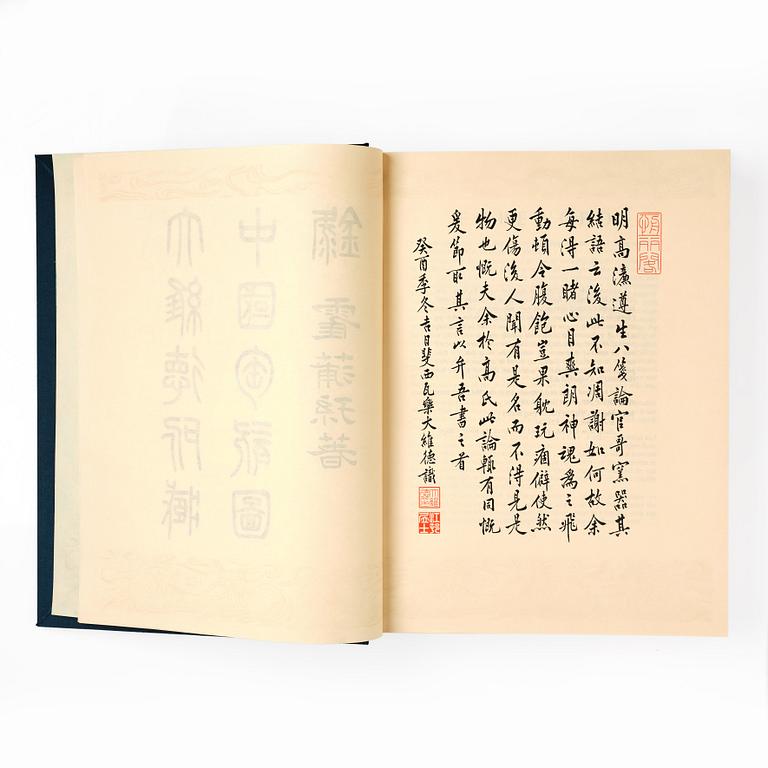 明高濂遵生八箋論官哥窯器其
結語云後此不知凋謝如何故余
每得一睹心目爽朗神魂爲之飛
動頓令腹飽豈果耽玩痼僻使然
更傷後人聞有是名而不得見是
物也慨夫余於高氏此論輒有同慨
爰節取其言以弁吾書之首
癸酉季冬吉日斐西瓦樂大維德識
大維德所藏
中國陶圖
錄 霍蒲孫著